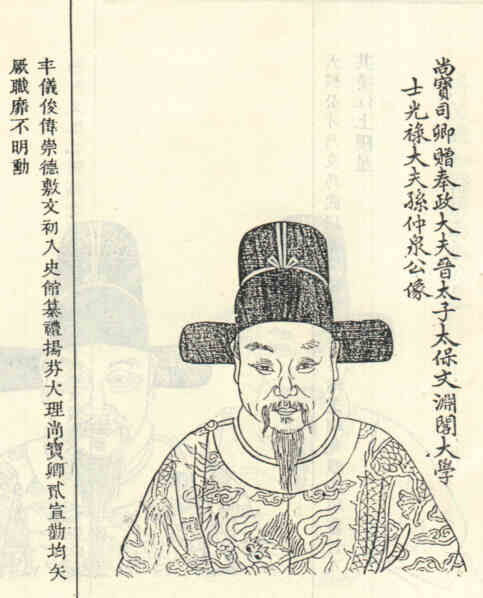 尚寶司卿贈奉政大夫晉太子太保文淵閣大學
士光祿大夫孫仲泉公像
丰儀俊偉崇德敷文初入史館纂禮揚芬大理尚寶卿貳宣勤均矢
厥職靡不明勳